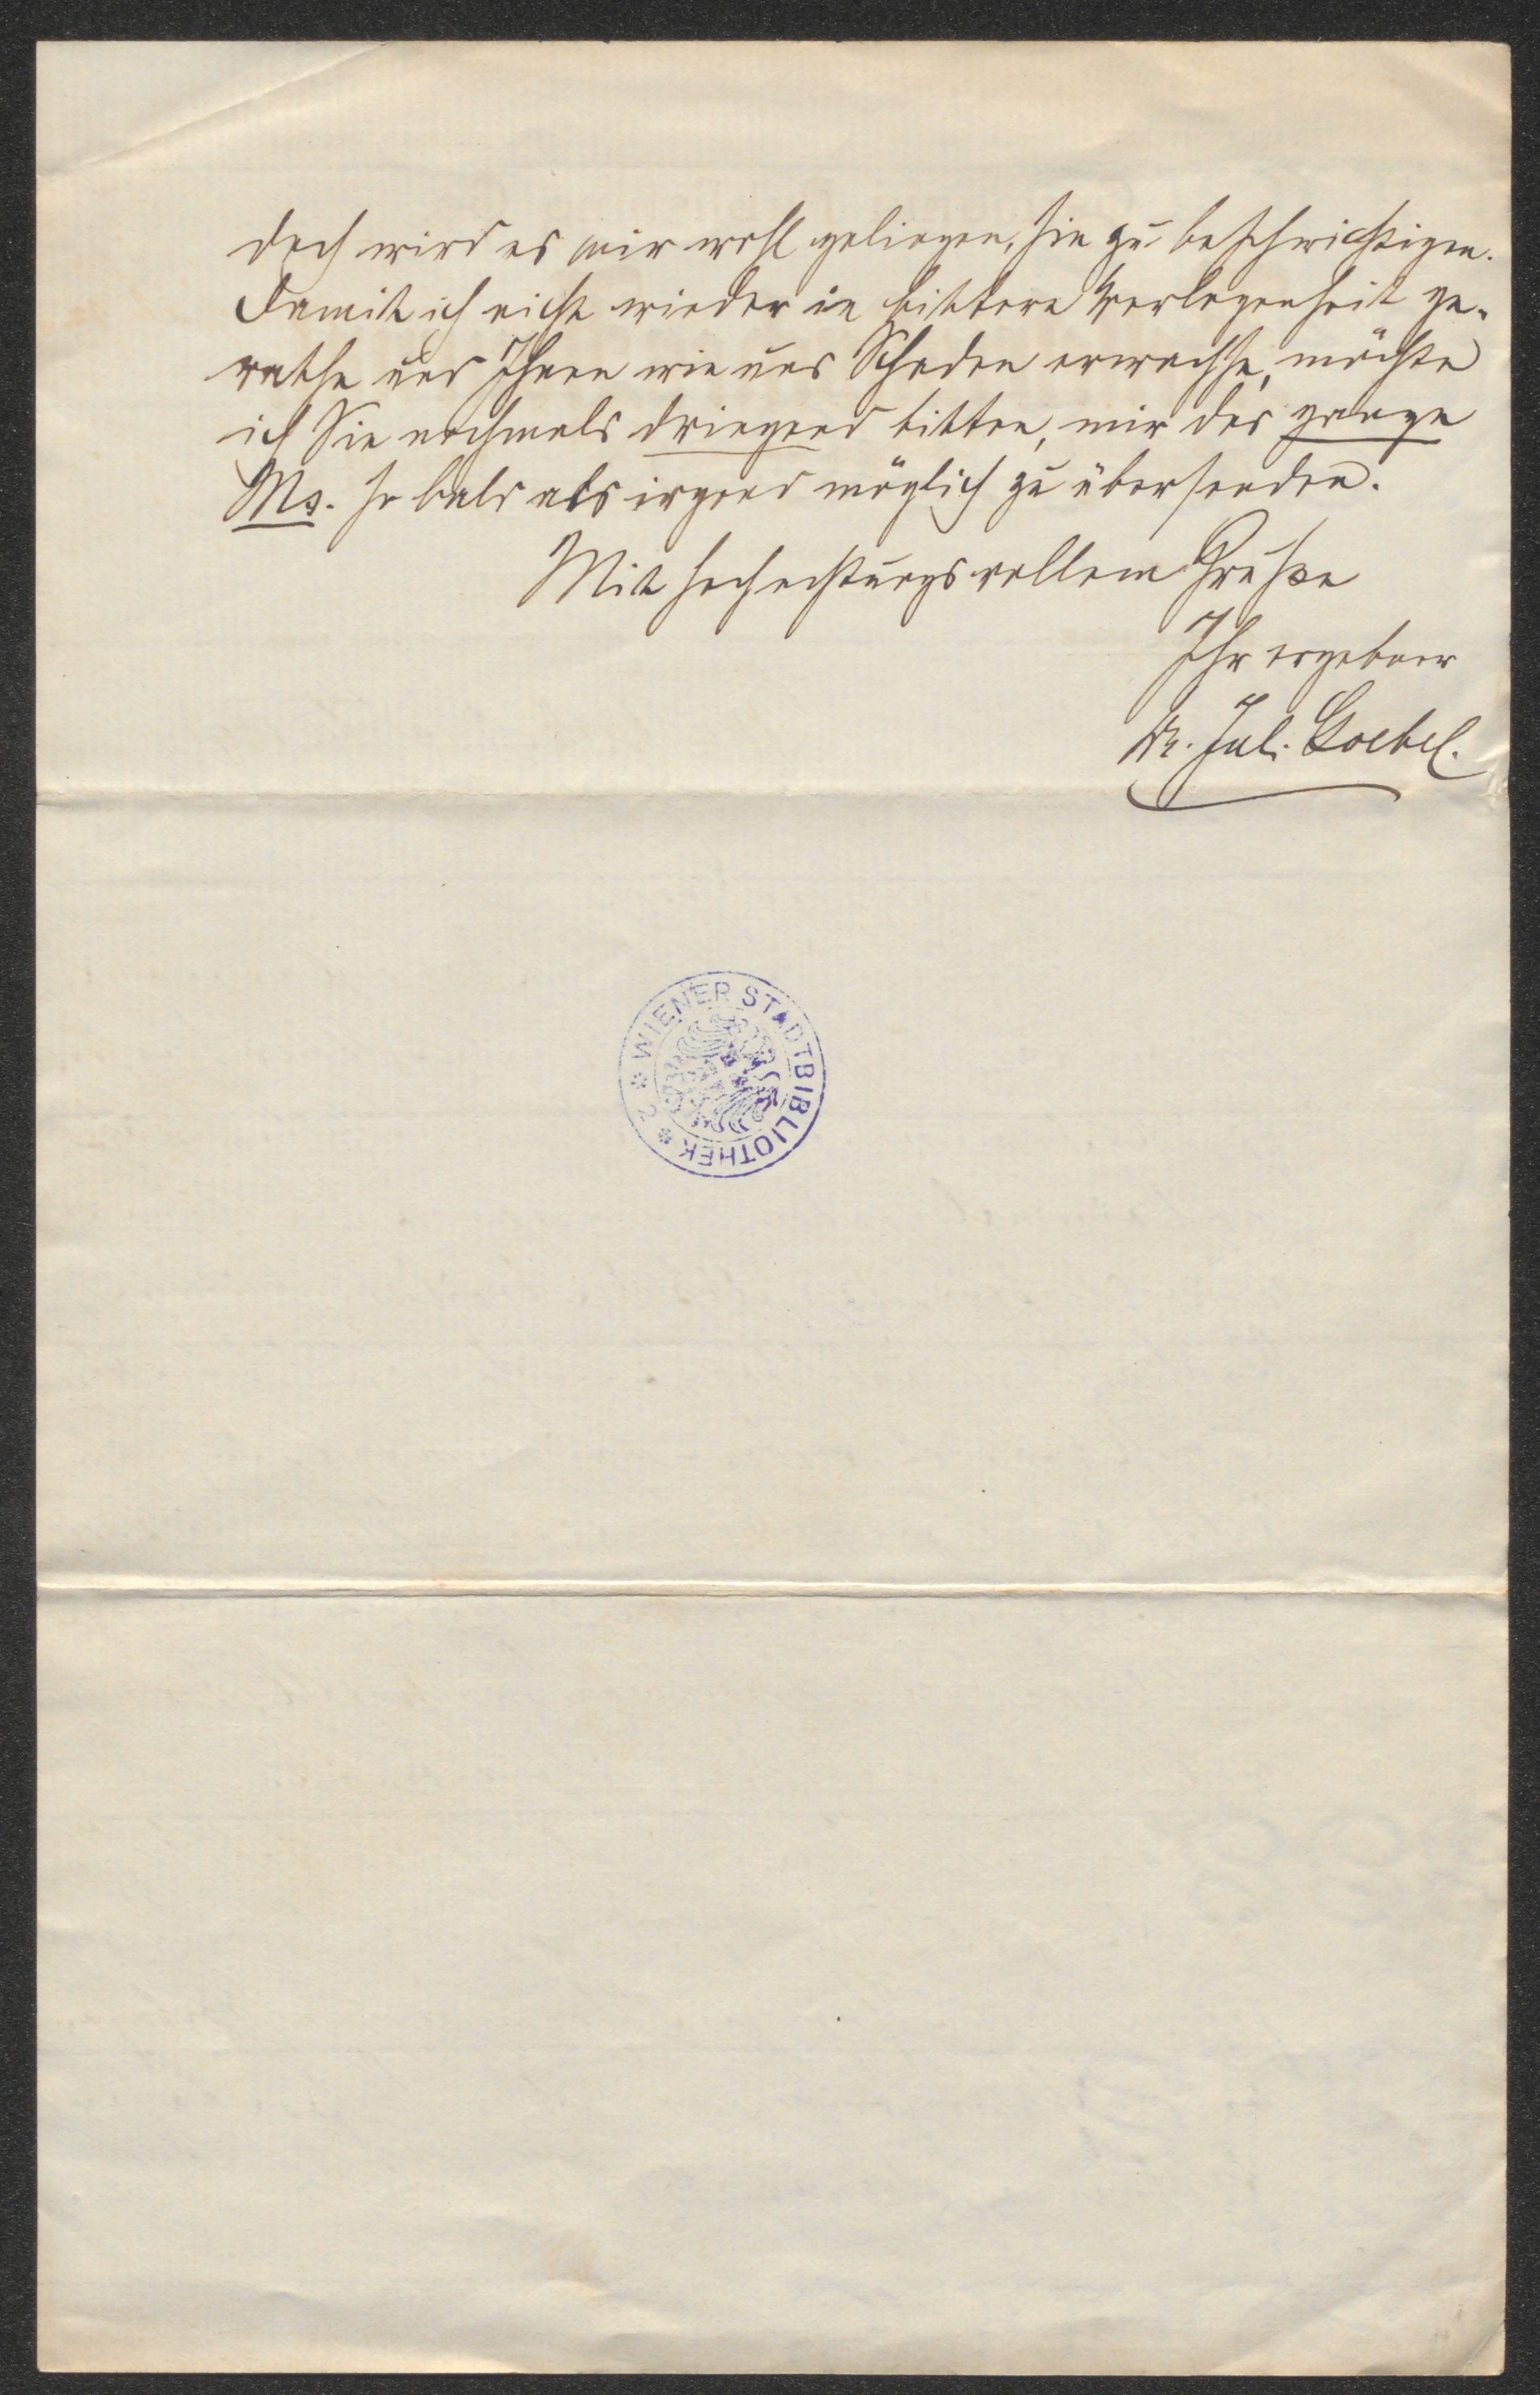 doch wird es mir wohl gelingen, sie zu beschwichtigen.
Damit ich nicht wieder in bittere Verlegenheit ge-
rathe und Ihnen wie uns Schaden erwachse, möchte
ich Sie nochmals dringend bitten, mir das ganze
Ms. so bald als irgend möglich zu übersenden.
Mit hochachtungsvollem Gruße
Ihr ergebner
Dr. Jul. Goebel.
* WIENER STADTBIBLIOTHEK * 2